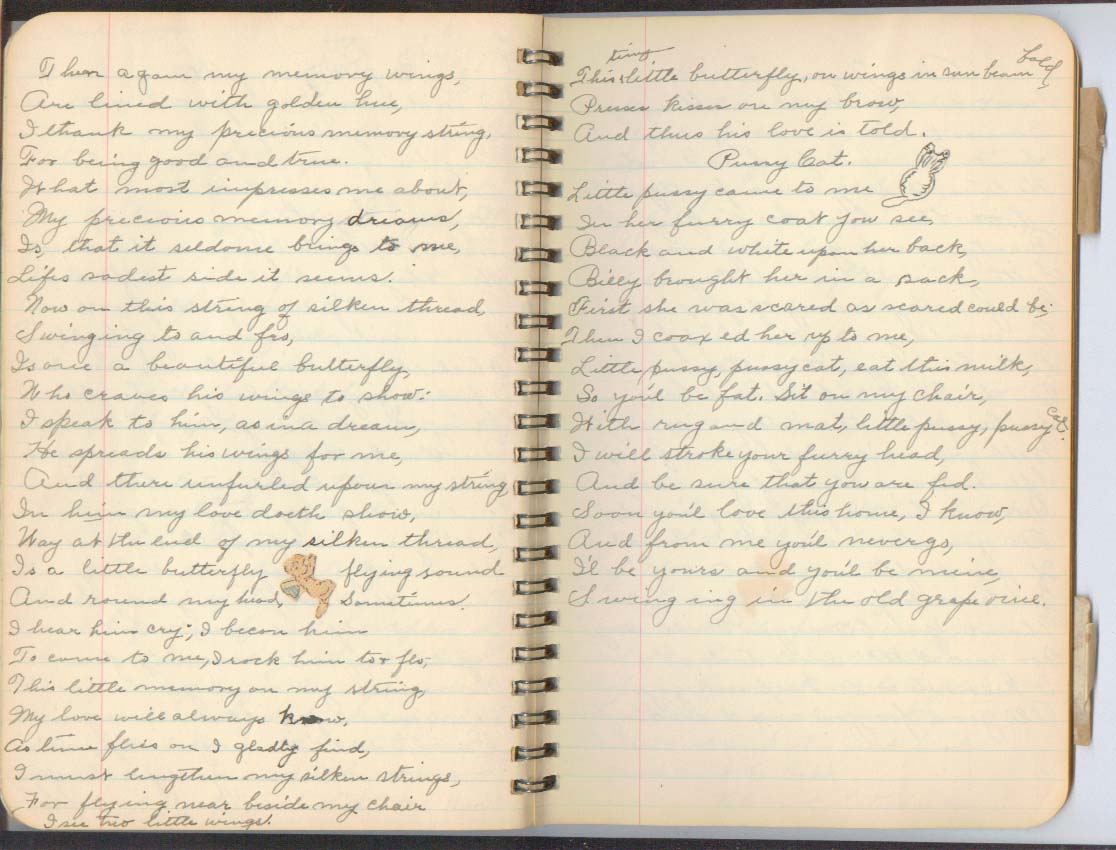 Then again my memory wings,
Are lined with golden hue,
I thank my precious memory string,
For being good and true.
What most impresses me about,
My precious memory dreams,
Is, that it seldome brings to me,
Lifes sadest side it seems.
Now on this string of silken thread,
Swinging to and fro,
Is one a beautiful butterfly,
Who craves his wings to show.
I speak to him, as in a dream,
He spreads his wings for me,
And there unfurled upon my string
In him my love doeth show,
Way at the end of my silken thread,
Is a little butterfly flying sound
And round my head, Sometimes.
I hear him cry; I becon him
To come to me, I rock him to & fro,
This little memory on my string
My love will always know,
As time flies on I gladly find,
I must lengthen my silken strings,
For flying near beside my chair
I see two little wings.
This tiny little butterfly, on wings in sun beam bold,
Presses kisses on my brow,
And thus his love is told.
Pussy Cat.
Little pussy came to me
In her furry coat you see,
Black and white upon her back,
Billy brought her in a sack,
First she was scared as scared could be;
Then I coaxed her up to me,
Little pussy, pussy cat, eat this milk,
So you'l be fat. Sit on my chair,
With rug and mat, little pussy, pussy cat.
I will stroke your furry head,
And be sure that you are fed.
Soon you'l love this home, I know,
And from me you'l never go,
I'l be yours and you'l be mine,
Swinging in the old grape vine.